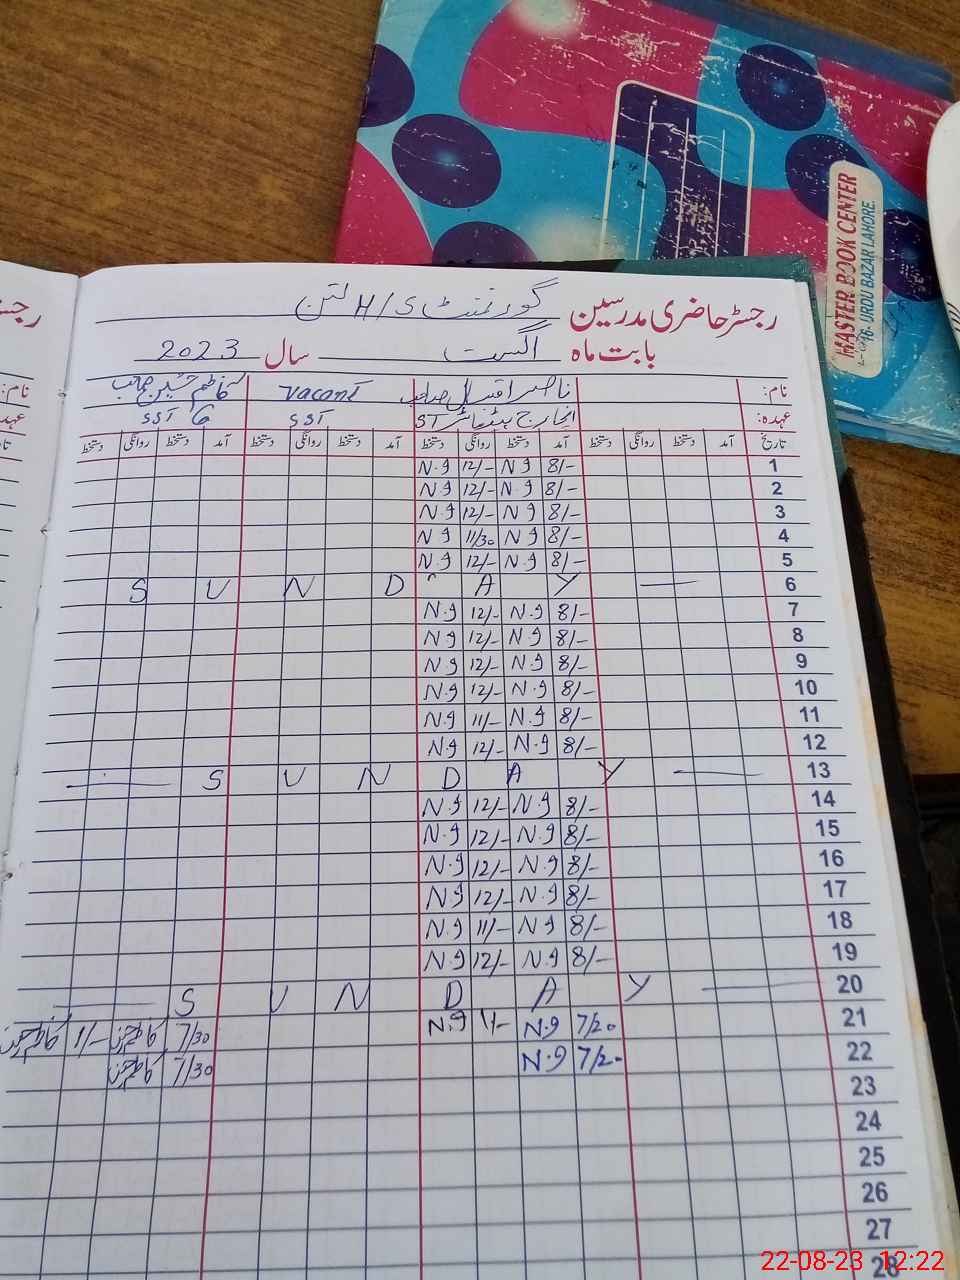 MASTER BOOK CENTER
16- URDU BAZAR LAHORE.
رجسٹر حاضری مدرسین گورنمنٹ H/S
بابت ماہ اگست سال 2023
نام: ناصر اقبال صاحب Vacant
عہدہ: انچارج ہیڈ ماسٹر SST SST
تاریخ آمد دستخط روانگی دستخط آمد دستخط روانگی دستخط آمد دستخط روانگی دستخط آمد دستخط روانگی دستخط
1 8/- N.9 12/- N.9
2 8/- N.9 12/- N.9
3 8/- N.9 12/- N.9
4 8/- N.9 11/30 N.9
5 8/- N.9 12/- N.9
6 S U N D A Y
7 8/- N.9 12/- N.9
8 8/- N.9 12/- N.9
9 8/- N.9 12/- N.9
10 8/- N.9 12/- N.9
11 8/- N.9 11/- N.9
12 8/- N.9 12/- N.9
13 S U N D A Y
14 8/- N.9 12/- N.9
15 8/- N.9 12/- N.9
16 8/- N.9 12/- N.9
17 8/- N.9 12/- N.9
18 8/- N.9 11/- N.9
19 8/- N.9 12/- N.9
20 S U N D A Y
21 7/20 N.9 1/- N.9 7/30 1/-
22 7/20 N.9 7/30
23
24
25
26
27
28
22-08-23 12:22